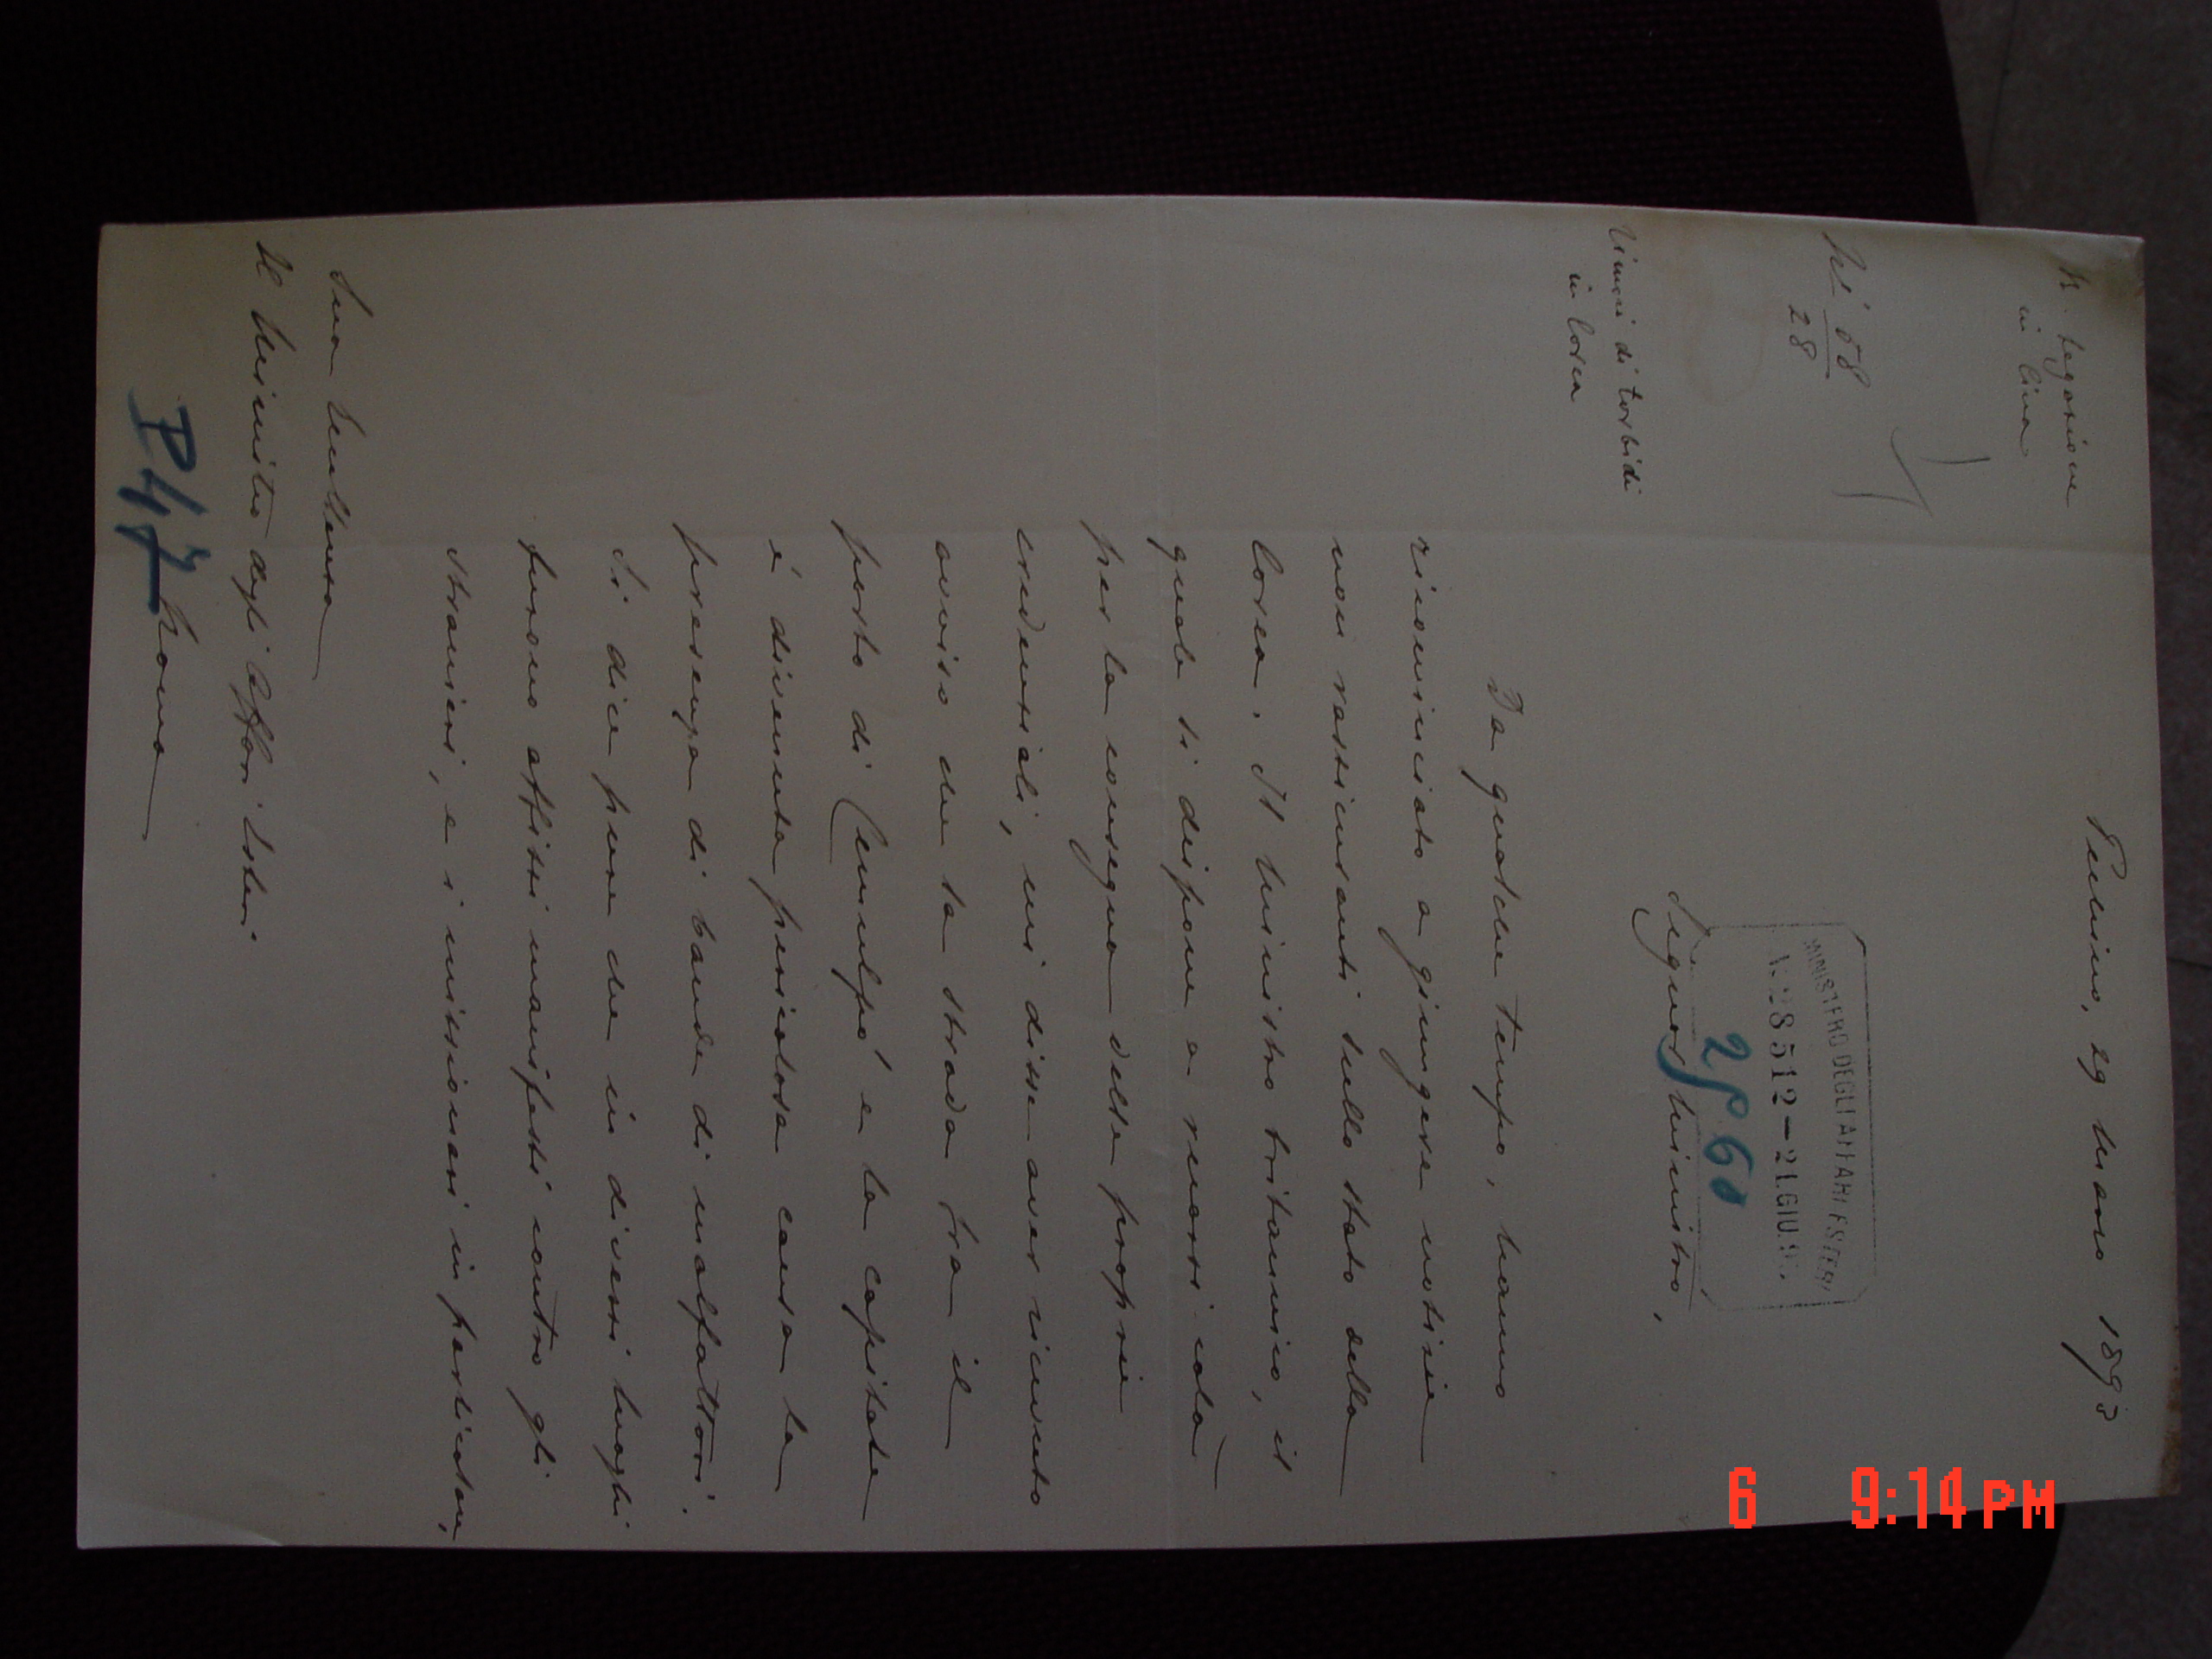 R. Legazione
in Cina
Pechino, 29 Marzo 1893
N.° 68
28
MINISTERO DEGLI AFFARI ESTERI
N. 28512 - 21.GIU.9
Signor Ministro,
di torbidi
in Corea
Da qualche tempo, hanno
ricominciato a giungere notizie
non rassicuranti sullo stato della
Corea. Il Ministro britannico, il
quale si dispone a recarsi colà
per la consegna delle proprie
credenziali, mi disse aver ricevuto
avviso che la strada fra il
porto di Cemulpó e la capitale
è divenuta pericolosa causa la
presenza di bande di malfattori.
Si dice pure che in diversi luoghi
furono affissi manifesti contro gli
stranieri, e i missionari in particolare,
Sua Eccellenza
Il Ministro degli Affari Esteri
Roma
6 9:14 PM